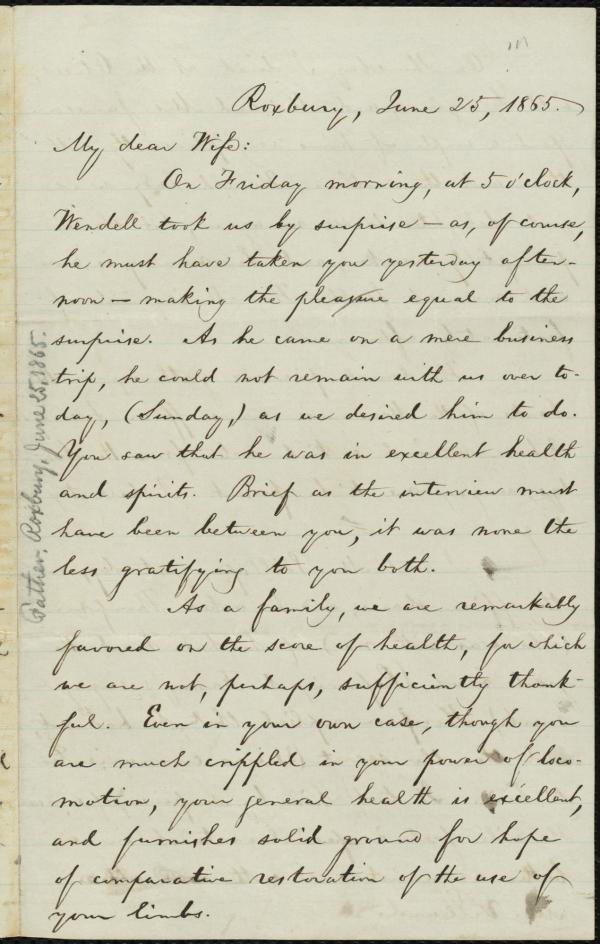 Roxbury, June 25, 1865.
My dear Wife:
On Friday morning, at 5 o'clock,
Wendell took us by surprise — as, of course,
he must have taken you yesterday after-
noon — making the pleasure equal to the
surprise. As he came on a mere business
trip, he could not remain with us over to-
day, (Sunday,) as we desired him to do.
You saw that he was in excellent health
and spirits. Brief as the interview must
have been between you, it was none the
less gratifying to you both.
As a family, we are remarkably
favored on the score of health, for which
we are not, perhaps, sufficiently thank-
ful. Even in your own case, though you
are much crippled in your power of loco-
motion, your general health is excellent,
and furnishes solid ground for hope
of comparative restoration of the use of
your limbs.
Father. Roxbury, June 25, 1865.